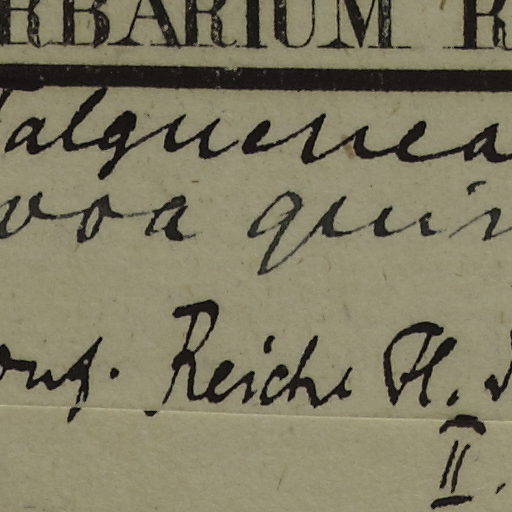 ERBARIUM R
Talguenea
voa quin
conf. Reiche Fl.
II.